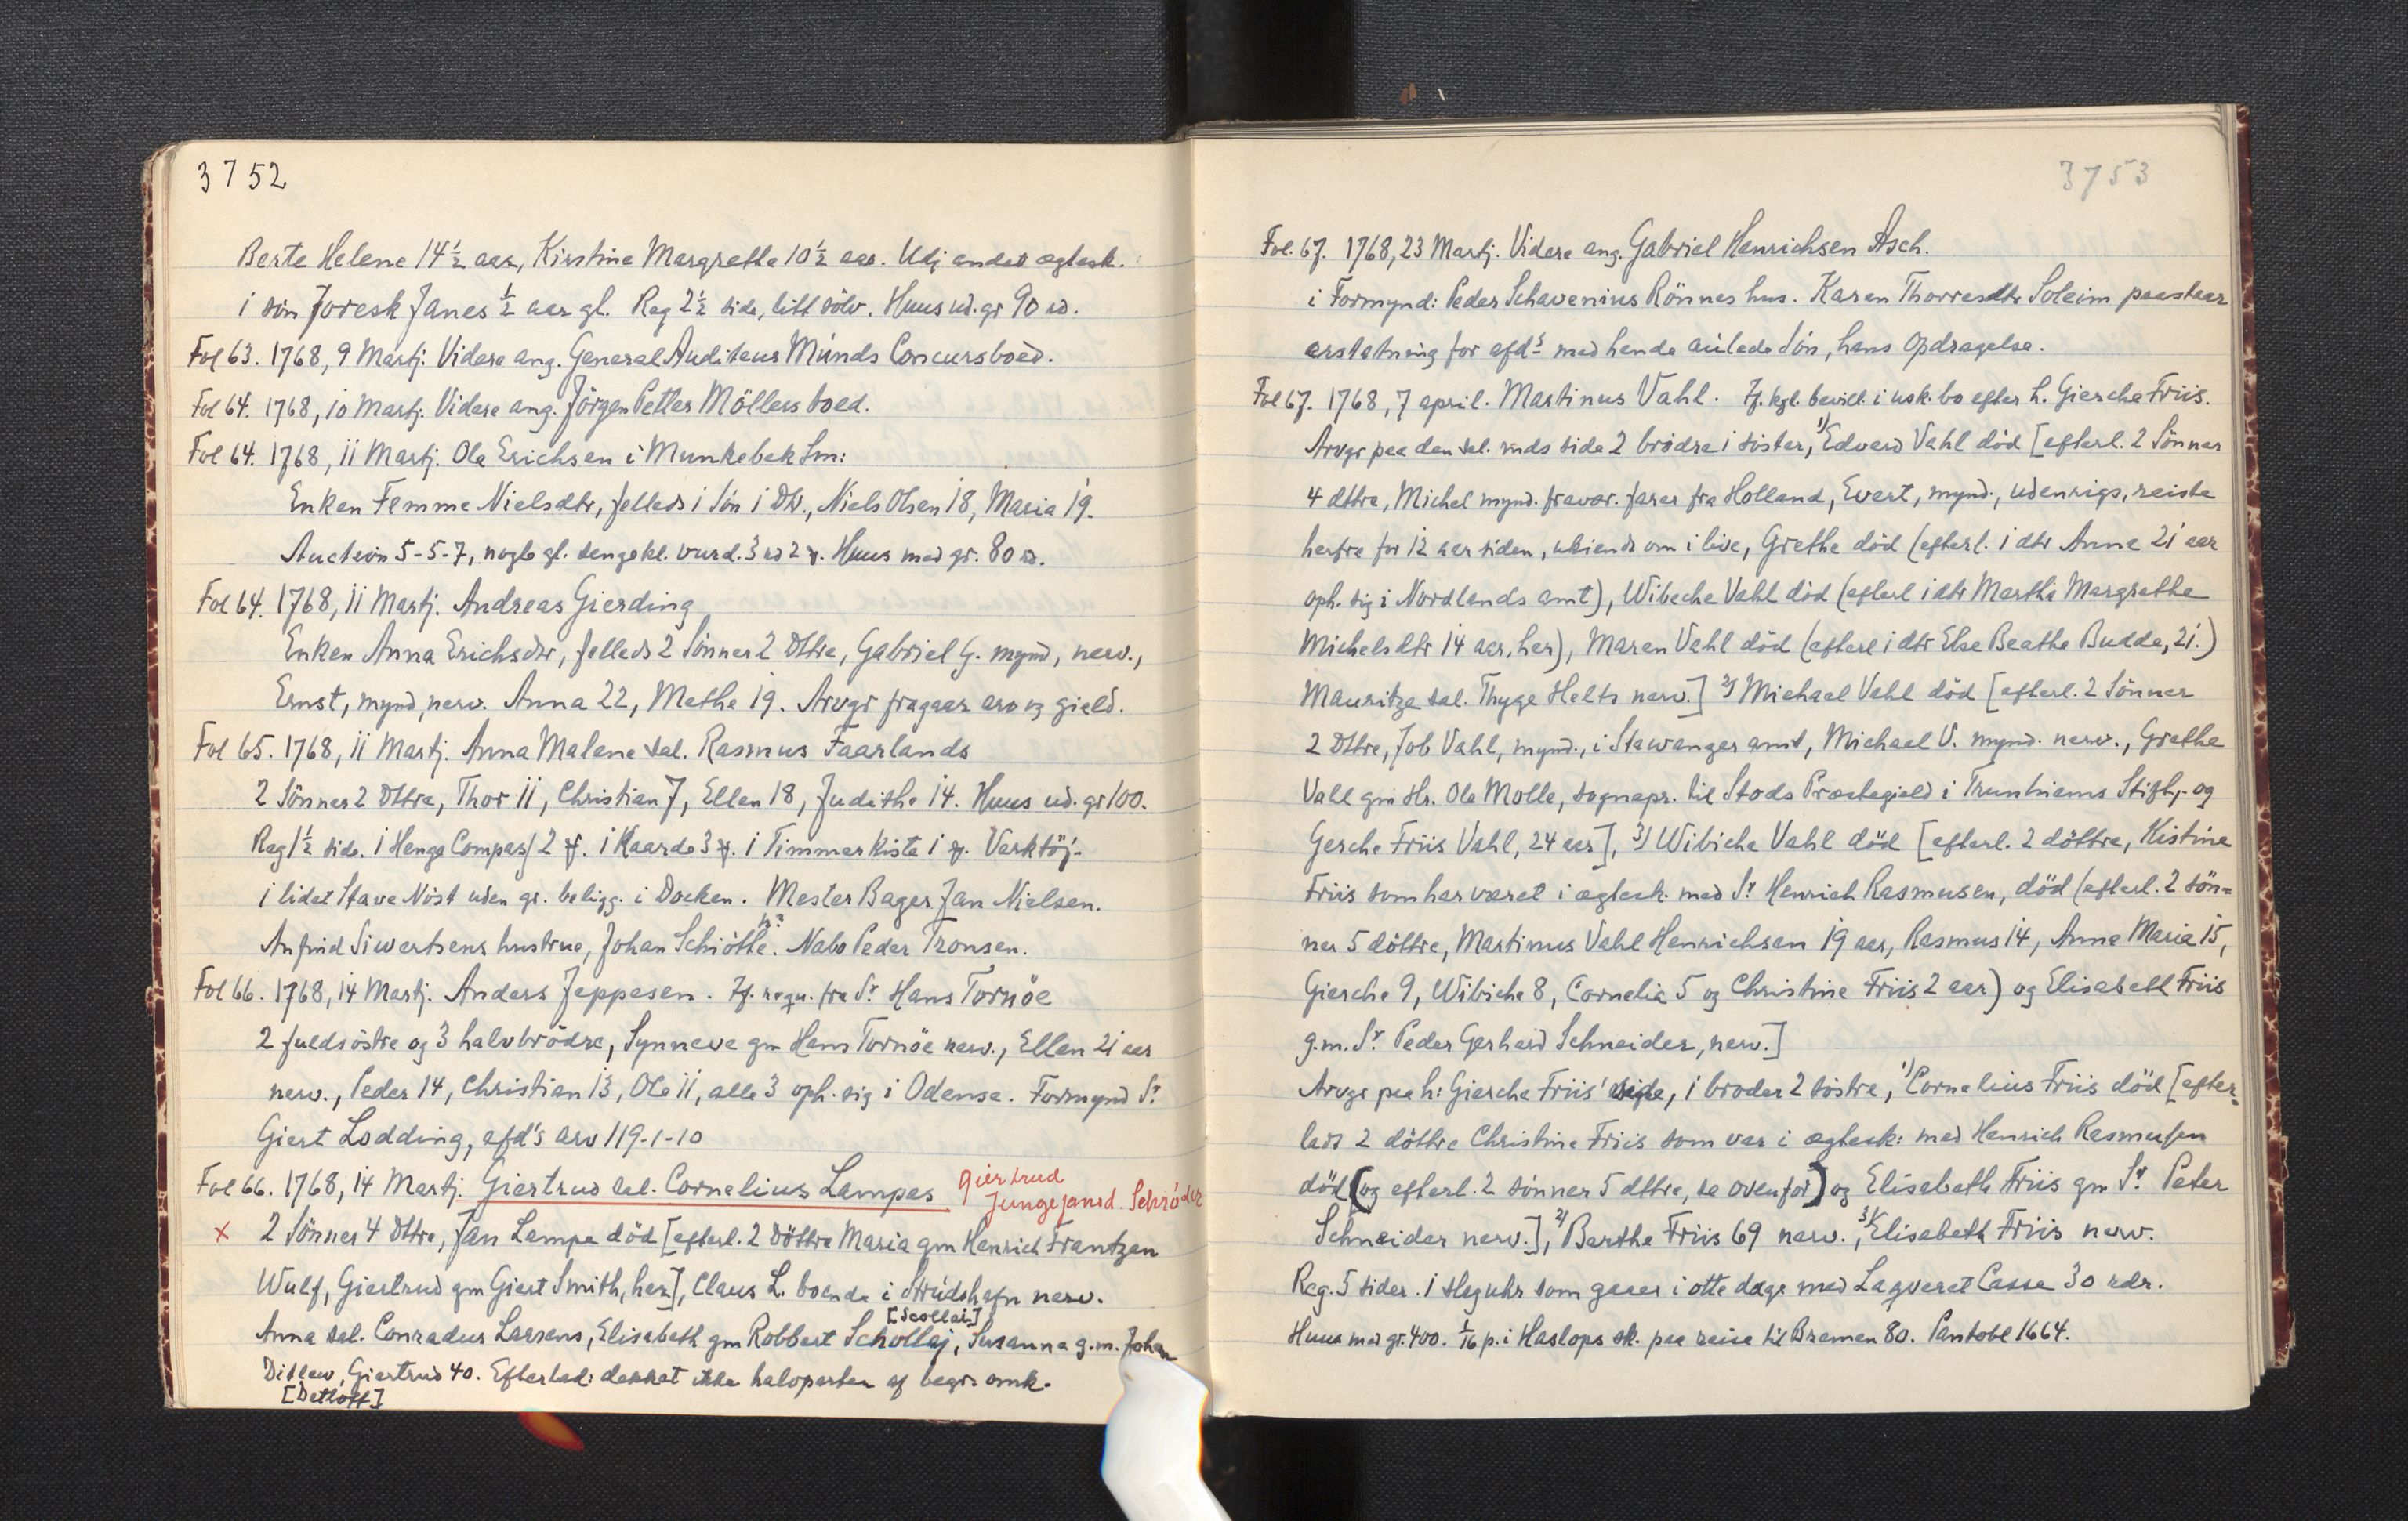 3752
Berte Helene 14½ aar, Kirstine Margrethe 10½ aar. Udj andet ægtesk.
1 søn Joresk Janes ½ aar gl. Reg 2½ side, litt sölv. Huus ud. gr 90 rd.
Fol 63. 1768, 9 Martj. Videre ang. General Auditeur Münds Concursboed.
Fol 64. 1768, 10 Martj. Videre ang. Jörgen Petter Möllers boed.
Fol 64. 1768, 11 Martj. Ole Erichsen i Munkebek Sm:
Enken Femme Nielsdtr, felleds 1 Sön 1 Dtr., Niels Olsen 18, Maria 19.
Auction 5-5-7, nogle gl. sengekl. vurd. 3 rd 2 ₰. Huus med gr. 80 rd.
Fol 64. 1768, 11 Martj. Andreas Gierding
Enken Anna Erichsdtr, felleds 2 Sönner 2 Dttre, Gabriel G. mynd, nerv.,
Ernst, mynd, nerv. Anna 22, Methe 19. Arvgr fragaar arv og gield.
Fol 65. 1768, 11 Martj. Anna Malene sal. Rasmus Faarlands
2 Sönner 2 Dttre, Thor 11, Christian 7, Ellen 18, Judithe 14. Huus ud. gr 100.
Reg 1½ side. 1 Henge Compas / 2 ₰. 1 Kaarde 3 ₰. 1 Timmerkiste 1 ₰. Verktöj.
1 lidet Stave Nöst uden gr. beligg. i Docken. Mester Bager Jan Nielsen.
Anfind Siwertsens hustrue, Johan Schiöthe. Nabo Peder Tronsen.
Fol 66. 1768, 14 Martj. Anders Jeppesen. Tf. requ. fra Sr Hans Tornöe
2 fuldsöstre og 3 halvbrödre, Synneve gm Hans Tornöe nerv., Ellen 21 aar
nerv., Peder 14, Christian 13, Ole 11, alle 3 oph. sig i Odense. Formynd Sr.
Giert Lodding, afd's arv 119-1-10
Fol 66. 1768, 14 Martj. Giertrud sal. Cornelius Lampes Giertrud
Jungejansd. Schröder
x 2 Sönner 4 Dttre, Jan Lampe död [efterl. 2 Döttre Maria gm Henrich Frantzen
Wulf, Giertrud gm Giert Smith, her], Claus L. boende i Strüdshafn nerv.
[Scollai]
Anna sal. Conradus Larsens, Elisabeth gm Robbert Schollaj, Susanna g.m. Johan
Ditlew, Giertrud 40. Efterlad: dekket ikke halvparten af begr. omk.
[Detloff]
3753
Fol. 67. 1768, 23 Martj. Videre ang. Gabriel Henrichsen Asch.
1 Formynd: Peder Schavenius Rönnes hus. Karen Thorresdtr Soleim paastaar
erstatning for afds med hende aülede Sön, hans Opdragelse.
Fol 67. 1768, 7 april. Martinus Vahl. Tf. kgl. bevill. i usk. bo efter h. Giesche Friis.
Arvgr paa den sal. mds side 2 brödre 1 söster, 1) Edvard Vahl död [efterl. 2 Sönner
4 dttre, Michel mynd. fravær. farer fra Holland, Evert, mynd., udenrigs, reiste
herfra for 12 aar siden, ukiendt om i live, Grethe död (efterl. 1 dtr Anne 21 aar
oph. sig i Nordlands amt), Wibeche Vahl död (efterl 1 dtr Martha Margrethe
Michelsdtr 14 aar, her), Maren Vahl död (efterl 1 dtr Else Beathe Budde, 21.)
Mauritze sal. Thyge Helts nerv.] 2) Michael Vahl död [efterl. 2 Sönner
2 Dttre, Job Vahl, mynd., i Stawanger amt, Michael V. mynd. nerv., Grethe
Vahl gm Hr. Ole Molle, sognepr. til Stods Præstegield i Trunhiems Stift, og
Gesche Friis Vahl, 24 aar], 3) Wibiche Vahl död [efterl. 2 döttre, Kistine
Friis som har været i ægtesk. med Sr Henrich Rasmusen, död (efterl. 2 sön=
ner 5 döttre, Martinus Vahl Henrichsen 19 aar, Rasmus 14, Anne Maria 15,
Giesche 9, Wibiche 8, Cornelia 5 og Christine Friis 2 aar) og Elisabeth Friis
g.m. Sr Peder Gerhard Schneider, nerv.]
Arvgr paa h: Giesche Friis' side, 1 broder 2 söstre, 1) Cornelius Friis död [efter=
ladt 2 döttre Christine Friis som var i ægtesk: med Henrich Rasmusen
död (og efterl. 2 sönner 5 dttre, se ovenfor) og Elisabeth Friis gm Sr Peter
Schneider nerv.], 2) Berthe Friis 69 nerv., 3) Elisabeth Friis nerv.
Reg. 5 sider. 1 slaguhr som gaaer i otte dage med Laqveret Casse 30 rdr.
Huus med gr. 400. 1/16 p. i Haslops sk. paa reise til Bremen 80. Pantobl 1664.